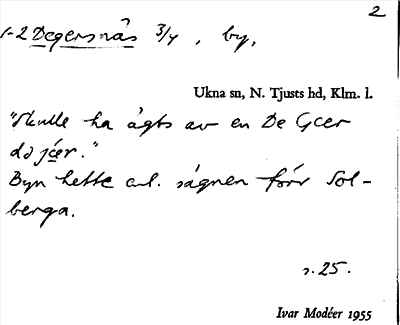 2
1-2 Degersnäs 3/4, by,
Ukna sn, N. Tjusts hd, Klm. l.
"Skulle ha ägts av en De Geer
."
Byn hette enl. sägnen förr Sol-
berga.
s. 25.
Ivar Modéer 1955